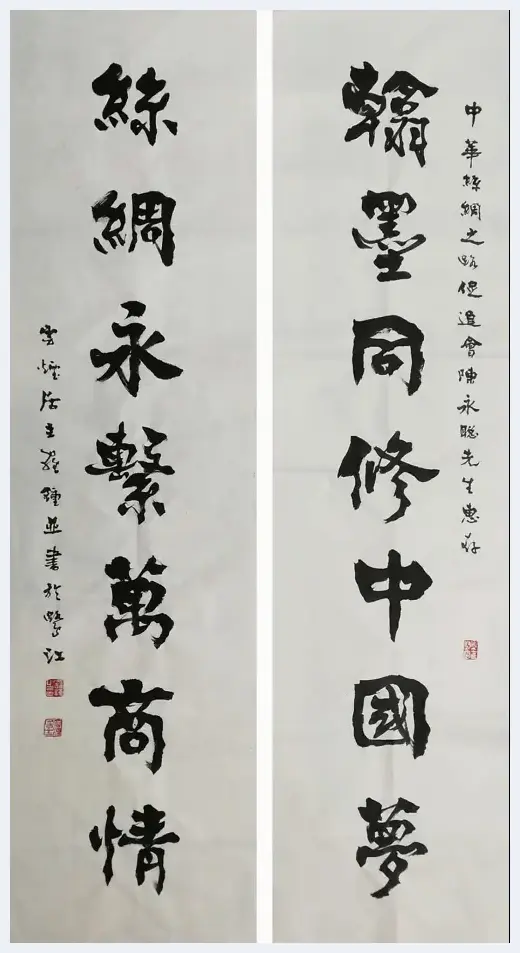 中華絲綢之路促進會陳永聰先生惠存
翰墨同修中國夢
絲綢永繫萬商情
雲煙居主 鍾 並書於 江